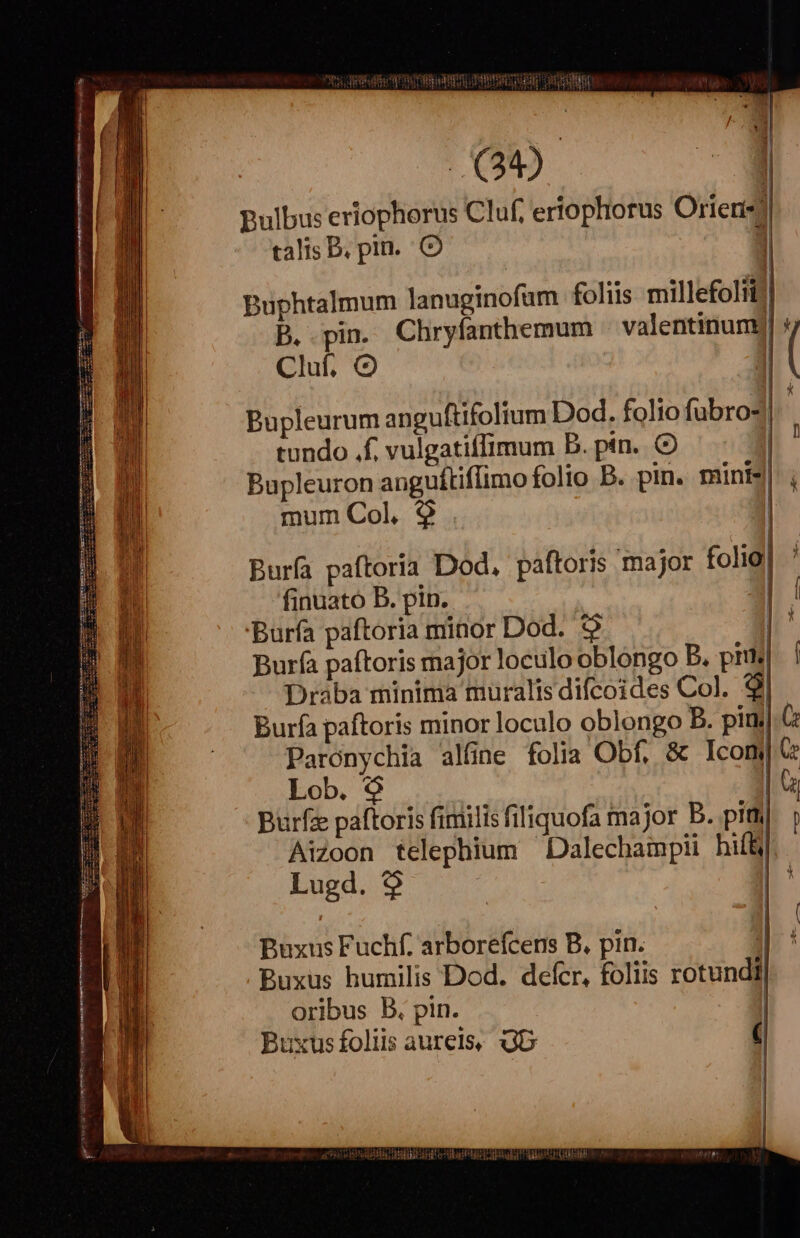 (34)
Bulbus eriophorus Cluſ, eriophorus Orien-
talis B. pin. ☉
Buphtalmum lanuginoſum foliis millefolii
B. pin. Chryſanthemum valentinum
Cluſ. ☉
Bupleurum anguſtifolium Dod. folio ſubro-
tundo ſ. vulgatiſſimum B. pin. ☉
Bupleuron anguſtiſſimo folio B. pin. mini-
mum Col. ♀
Burſa paſtoria Dod. paſtoris major folio
ſinuato B. pin.
Burſa paſtoria minor Dod. ♀
Burſa paſtoris major loculo oblongo B. pin.
Draba minima muralis diſcoides Col. ♀
Burſa paſtoris minor loculo oblongo B. pin.
Paronychia alſine folia Obſ. & Icon.
Lob. ♀
Burſæ paſtoris ſimilis ſiliquoſa major B. pin.
Aizoon telephium Dalechampii hiſt.
Lugd. ♀
Buxus Fuchſ. arboreſcens B. pin.
Buxus humilis Dod. deſcr. foliis rotundi-
oribus B. pin.
Buxus foliis aureis,